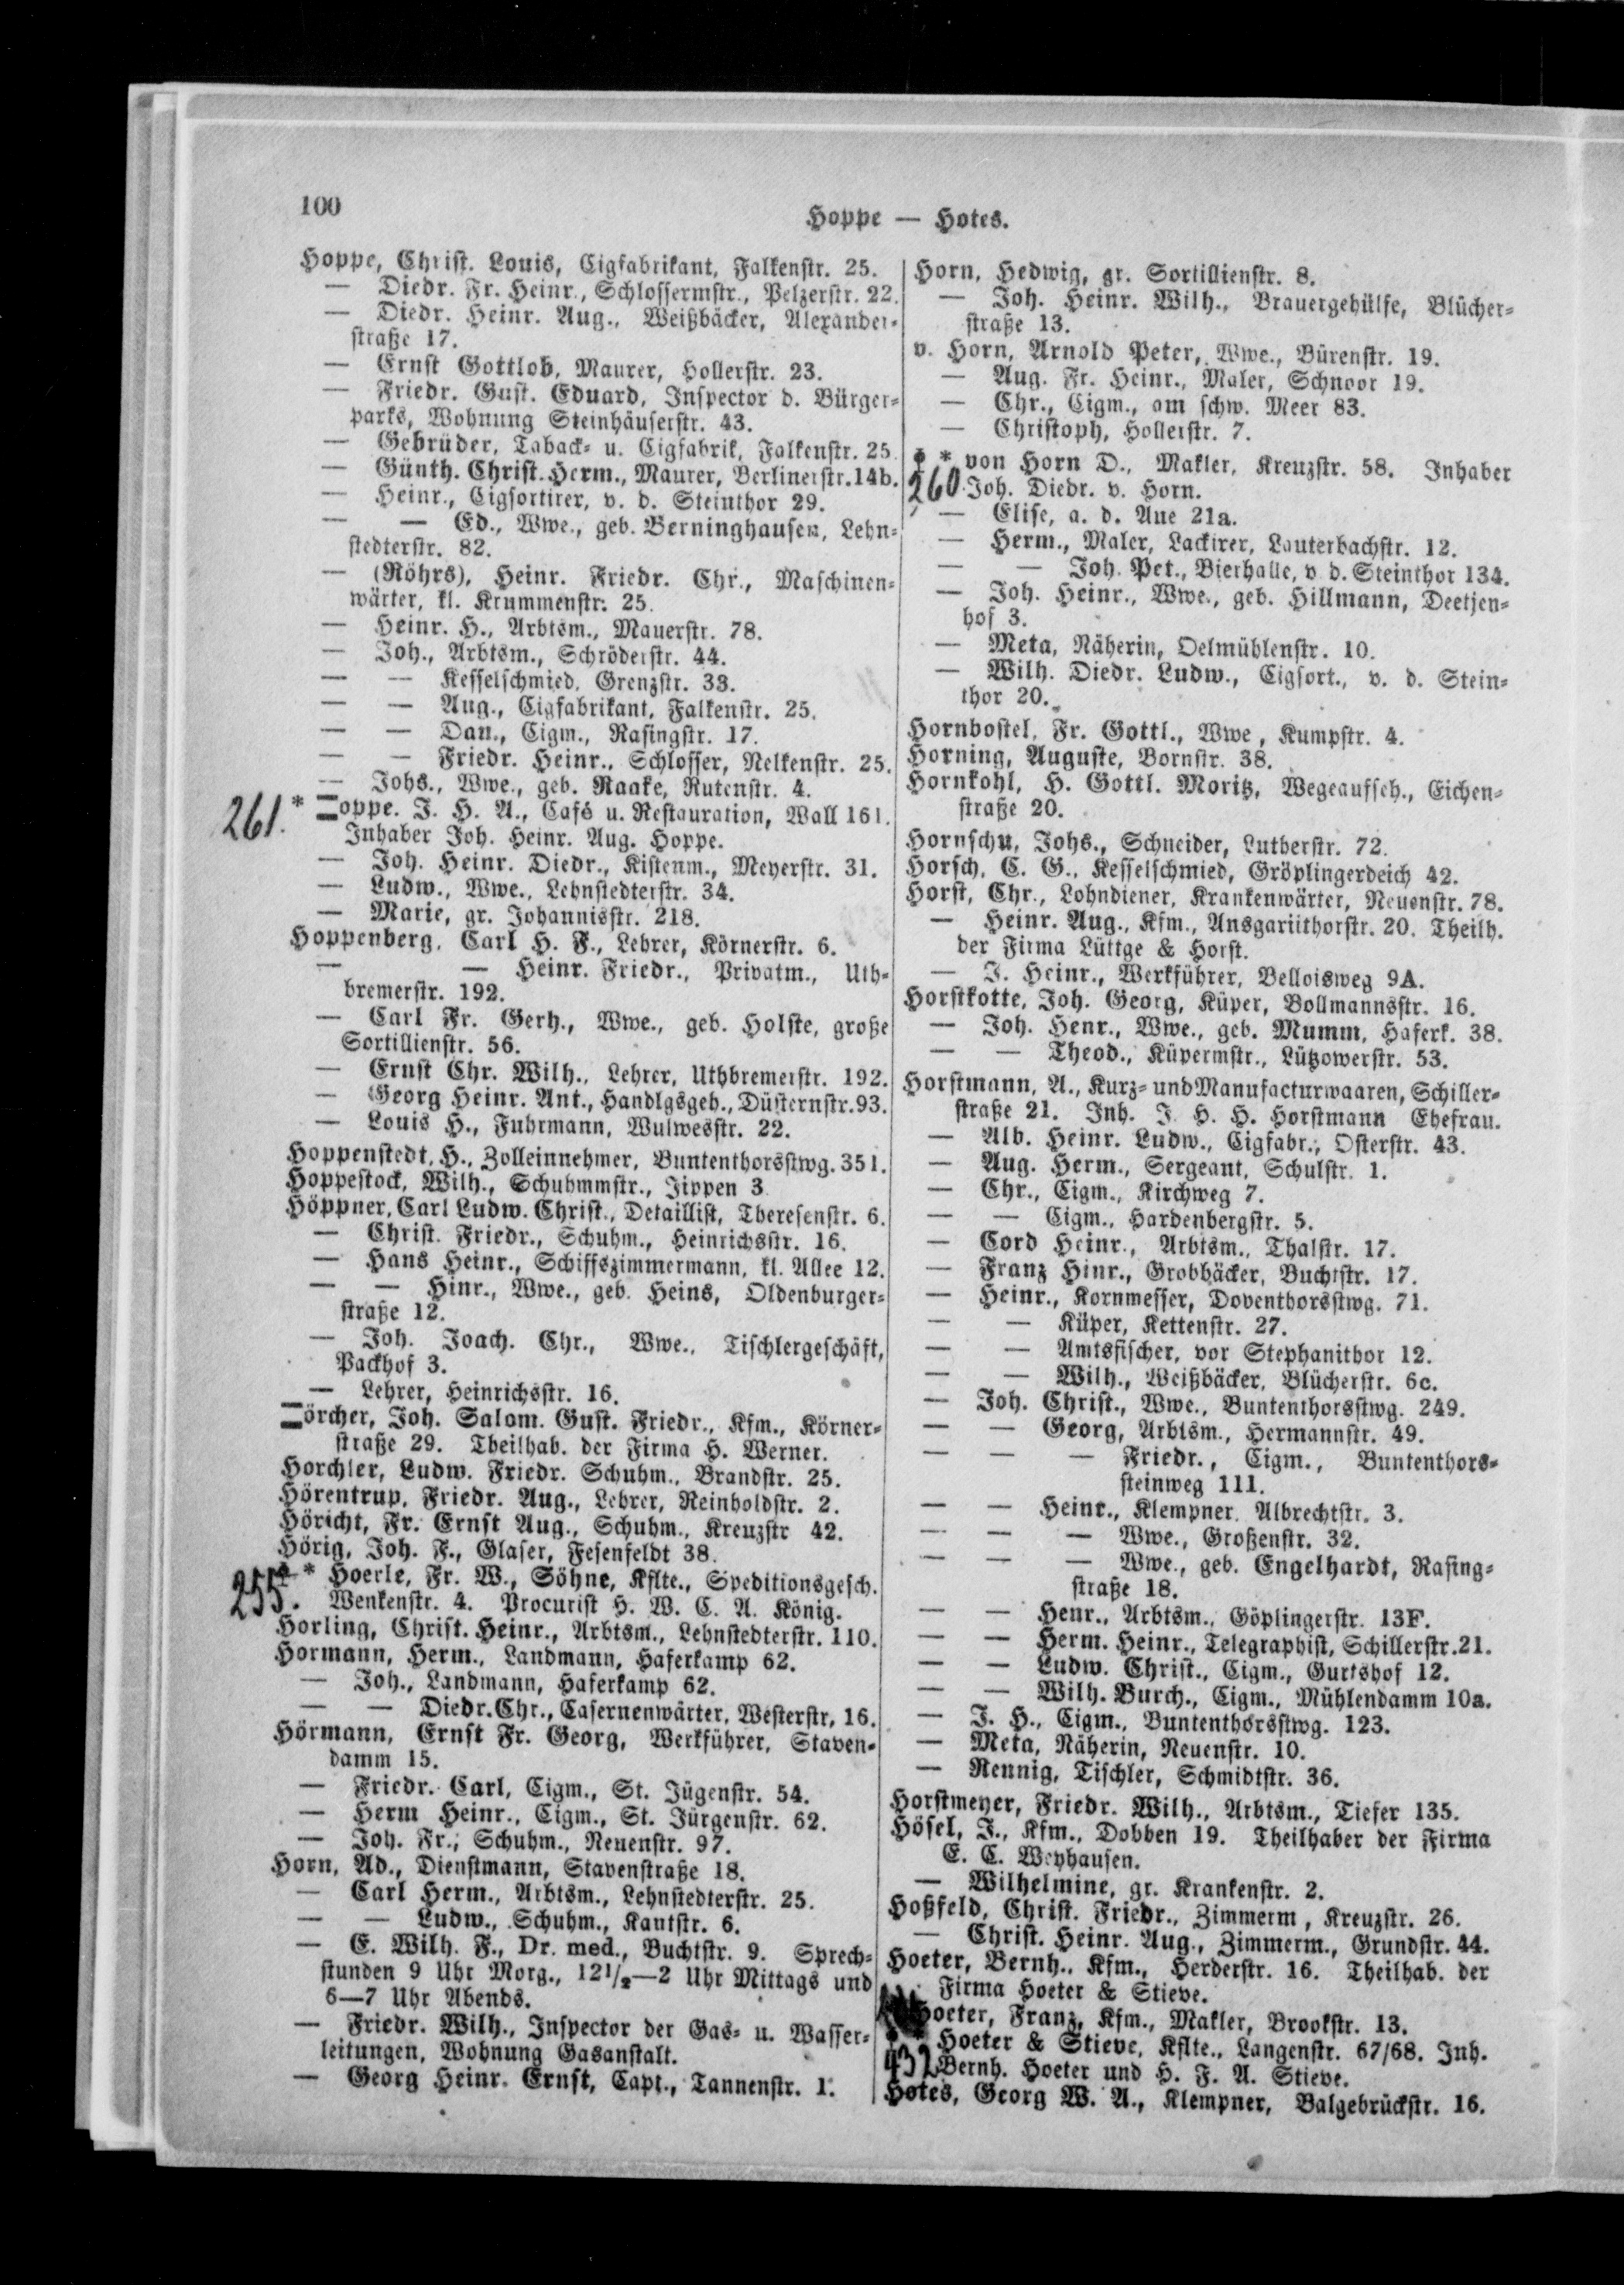 100
Hoppe — Hotes.
Hoppe, Christ. Louis, Cigfabrikant, Falkenstr. 25.
— Diedr. Fr. Heinr., Schlossermstr., Pelzerstr. 22.
— Diedr. Heinr. Aug., Weißbäcker, Alexander-
straße 17.
— Ernst Gottlob, Maurer, Hollerstr. 23.
— Friedr. Gust. Eduard, Inspector d. Bürger-
parks, Wohnung Steinhäuserstr. 43.
— Gebrüder, Taback- u. Cigfabrik, Falkenstr. 25.
— Günth. Christ. Herm., Maurer, Berlinerstr. 14b.
— Heinr., Cigsortirer, v. d. Steinthor 29.
— — Ed., Wwe., geb. Berninghausen, Lehn-
stedterstr. 82.
— (Röhrs), Heinr. Friedr. Chr., Maschinen-
wärter, kl. Krummenstr. 25.
— Heinr. H., Arbtsm., Mauerstr. 78.
— Joh., Arbtsm., Schröderstr. 44.
— — Kesselschmied, Grenzstr. 33.
— — Aug., Cigfabrikant, Falkenstr. 25.
— — Dan., Cigm., Rasingstr. 17.
— — Friedr. Heinr., Schlosser, Nelkenstr. 25.
— Johs., Wwe., geb. Raake, Rutenstr. 4.
261. * oppe. J. H. A., Café u. Restauration, Wall 161.
Inhaber Joh. Heinr. Aug. Hoppe.
— Joh. Heinr. Diedr., Kistenm., Meyerstr. 31.
— Ludw., Wwe., Lehnstedterstr. 34.
— Marie, gr. Johannisstr. 218.
Hoppenberg, Carl H. F., Lehrer, Körnerstr. 6.
— — Heinr. Friedr., Privatm., Uth-
bremerstr. 192.
— Carl Fr. Gerh., Wwe., geb. Holste, große
Sortillienstr. 56.
— Ernst Chr. Wilh., Lehrer, Uthbremerstr. 192.
— Georg Heinr. Ant., Handlgsgeh., Düsternstr. 93.
— Louis H., Fuhrmann, Wulwesstr. 22.
Hoppenstedt, H., Zolleinnehmer, Buntenthorsstwg. 351.
Hoppestock, Wilh., Schuhmmstr., Jippen 3.
Höppner, Carl Ludw. Christ., Detaillist, Theresenstr. 6.
— Christ. Friedr., Schuhm., Heinrichsstr. 16.
— Hans Heinr., Schiffszimmermann, kl. Allee 12.
— — Hinr., Wwe., geb. Heins, Oldenburger-
straße 12.
— Joh. Joach. Chr., Wwe., Tischlergeschäft,
Packhof 3.
— Lehrer, Heinrichsstr. 16.
örcher, Joh. Salom. Gust. Friedr., Kfm., Körner-
straße 29. Theilhab. der Firma H. Werner.
Horchler, Ludw. Friedr. Schuhm., Brandstr. 25.
Hörentrup, Friedr. Aug., Lehrer, Reinholdstr. 2.
Höricht, Fr. Ernst Aug., Schuhm., Kreuzstr 42.
Hörig, Joh. F., Glaser, Fesenfeldt 38.
* Hoerle, Fr. W., Söhne, Kflte., Speditionsgesch.
255. Wenkenstr. 4. Procurist H. W. C. A. König.
Horling, Christ. Heinr., Arbtsm., Lehnstedterstr. 110.
Hormann, Herm., Landmann, Haferkamp 62.
— Joh., Landmann, Haferkamp 62.
— — Diedr. Chr., Casernenwärter, Westerstr, 16.
Hörmann, Ernst Fr. Georg, Werkführer, Staven-
damm 15.
— Friedr. Carl, Cigm., St. Jügenstr. 54.
— Herm Heinr., Cigm., St. Jürgenstr. 62.
— Joh. Fr., Schuhm., Neuenstr. 97.
Horn, Ad., Dienstmann, Stavenstraße 18.
— Carl Herm., Arbtsm., Lehnstedterstr. 25.
— — Ludw., Schuhm., Kantstr. 6.
— E. Wilh. F., Dr. med., Buchtstr. 9. Sprech-
stunden 9 Uhr Morg., 12 1/2—2 Uhr Mittags und
6—7 Uhr Abends.
— Friedr. Wilh., Inspector der Gas- u. Wasser-
leitungen, Wohnung Gasanstalt.
— Georg Heinr. Ernst, Capt., Tannenstr. 1.
Horn, Hedwig, gr. Sortillienstr. 8.
— Joh. Heinr. Wilh., Brauergehülfe, Blücher-
straße 13.
v. Horn, Arnold Peter, Wwe., Bürenstr. 19.
— Aug. Fr. Heinr., Maler, Schnoor 19.
— Chr., Cigm., am schw. Meer 83.
— Christoph, Hollerstr. 7.
* von Horn D., Makler, Kreuzstr. 58. Inhaber
260. Joh. Diedr. v. Horn.
— Elise, a. d. Aue 21a.
— Herm., Maler, Lackirer, Lauterbachstr. 12.
— — Joh. Pet., Bierhalle, v d. Steinthor 134.
— Joh. Heinr., Wwe., geb. Hillmann, Deetjen-
hof 3.
— Meta, Näherin, Oelmühlenstr. 10.
— Wilh. Diedr. Ludw., Cigsort., v. d. Stein-
thor 20.
Hornbostel, Fr. Gottl., Wwe, Kumpstr. 4.
Horning, Auguste, Bornstr. 38.
Hornkohl, H. Gottl. Moritz, Wegeaufseh., Eichen-
straße 20.
Hornschu, Johs., Schneider, Lutherstr. 72.
Horsch, C. G., Kesselschmied, Gröplingerdeich 42.
Horst, Chr., Lohndiener, Krankenwärter, Neuenstr. 78.
— Heinr. Aug., Kfm., Ansgariithorstr. 20. Theilh.
der Firma Lüttge & Horst.
— J. Heinr., Werkführer, Belloisweg 9A.
Horstkotte, Joh. Georg, Küper, Bollmannsstr. 16.
— Joh. Henr., Wwe., geb. Mumm, Haferk. 38.
— — Theod., Küpermstr., Lützowerstr. 53.
Horstmann, A., Kurz- und Manufacturwaaren, Schiller-
straße 21. Inh. J. H. H. Horstmann Ehefrau.
— Alb. Heinr. Ludw., Cigfabr., Osterstr. 43.
— Aug. Herm., Sergeant, Schulstr. 1.
— Chr., Cigm., Kirchweg 7.
— — Cigm., Hardenbergstr. 5.
— Cord Heinr., Arbtsm., Thalstr. 17.
— Franz Hinr., Grobbäcker, Buchtstr. 17.
— Heinr., Kornmesser, Doventhorsstwg. 71.
— — Küper, Kettenstr. 27.
— — Amtsfischer, vor Stephanithor 12.
— — Wilh., Weißbäcker, Blücherstr. 6c.
— Joh. Christ., Wwe., Buntenthorsstwg. 249.
— — Georg, Arbtsm., Hermannstr. 49.
— — — Friedr., Cigm., Buntenthors-
steinweg 111.
— — Heinr., Klempner, Albrechtstr. 3.
— — — Wwe., Großenstr. 32.
— — — Wwe., geb. Engelhardt, Rasing-
straße 18.
— — Henr., Arbtsm., Göplingerstr. 13F.
— — Herm. Heinr., Telegraphist, Schillerstr. 21.
— — Ludw. Christ., Cigm., Gurtshof 12.
— — Wilh. Burch., Cigm., Mühlendamm 10a.
— J. H., Cigm., Buntenthorsstwg. 123.
— Meta, Näherin, Neuenstr. 10.
— Rennig, Tischler, Schmidtstr. 36.
Horstmeyer, Friedr. Wilh., Arbtsm., Tiefer 135.
Hösel, J., Kfm., Dobben 19. Theilhaber der Firma
E. C. Weyhausen.
— Wilhelmine, gr. Krankenstr. 2.
Hoßfeld, Christ. Friedr., Zimmerm, Kreuzstr. 26.
— Christ. Heinr. Aug., Zimmerm., Grundstr. 44.
Hoeter, Bernh., Kfm., Herderstr. 16. Theilhab. der
Firma Hoeter & Stieve.
Hoeter, Franz, Kfm., Makler, Brookstr. 13.
* Hoeter & Stieve, Kflte., Langenstr. 67/68. Inh.
432 Bernh. Hoeter und H. F. A. Stieve.
Hotes, Georg W. A., Klempner, Balgebrückstr. 16.